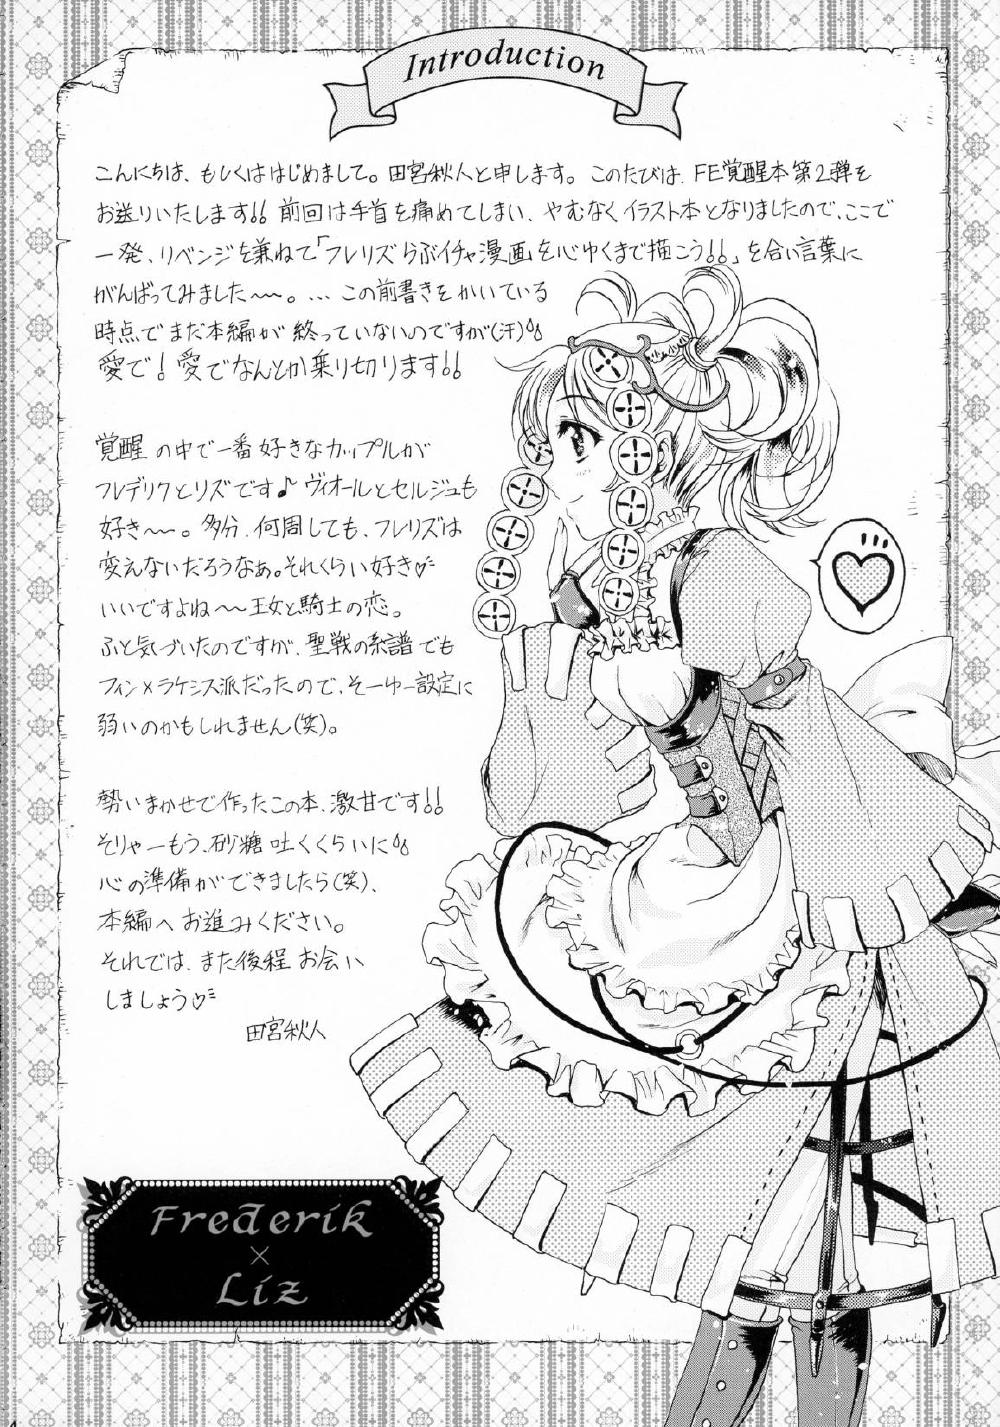 Introduction
こんにちは、もしくははじめまして。田宮秋人と申します。このたびは、FE覚醒本第2弾を
お送りいたします!! 前回は手首を痛めてしまい、やむなくイラスト本となりましたので、ここで
一発、リベンジを兼ねて「フレリズらぶイチャ漫画を心ゆくまで描こう!!」を合い言葉に
がんばってみました〜〜。... この前書きをかいている
時点でまだ本編が終っていないのですが(汗)
愛で! 愛でなんとか乗り切ります!!
覚醒の中で一番好きなカップルが
フレデリクとリズです♪ ヴィオールとセルジュも
好き〜〜。多分、何周しても、フレリズは
変えないだろうなぁ。それくらい好き♡
いいですよね〜〜王女と騎士の恋。
ふと気づいたのですが、聖戦の系譜でも
フィン×ラケシス派だったので、そーゆー設定に
弱いのかもしれません(笑)。
勢いまかせで作ったこの本、激甘です!!
そりゃーもう、砂糖吐くくらいに
心の準備ができましたら(笑)、
本編へお進みください。
それでは、また後程お会い
しましょう♡
田宮秋人
Frederik
×
Liz
4